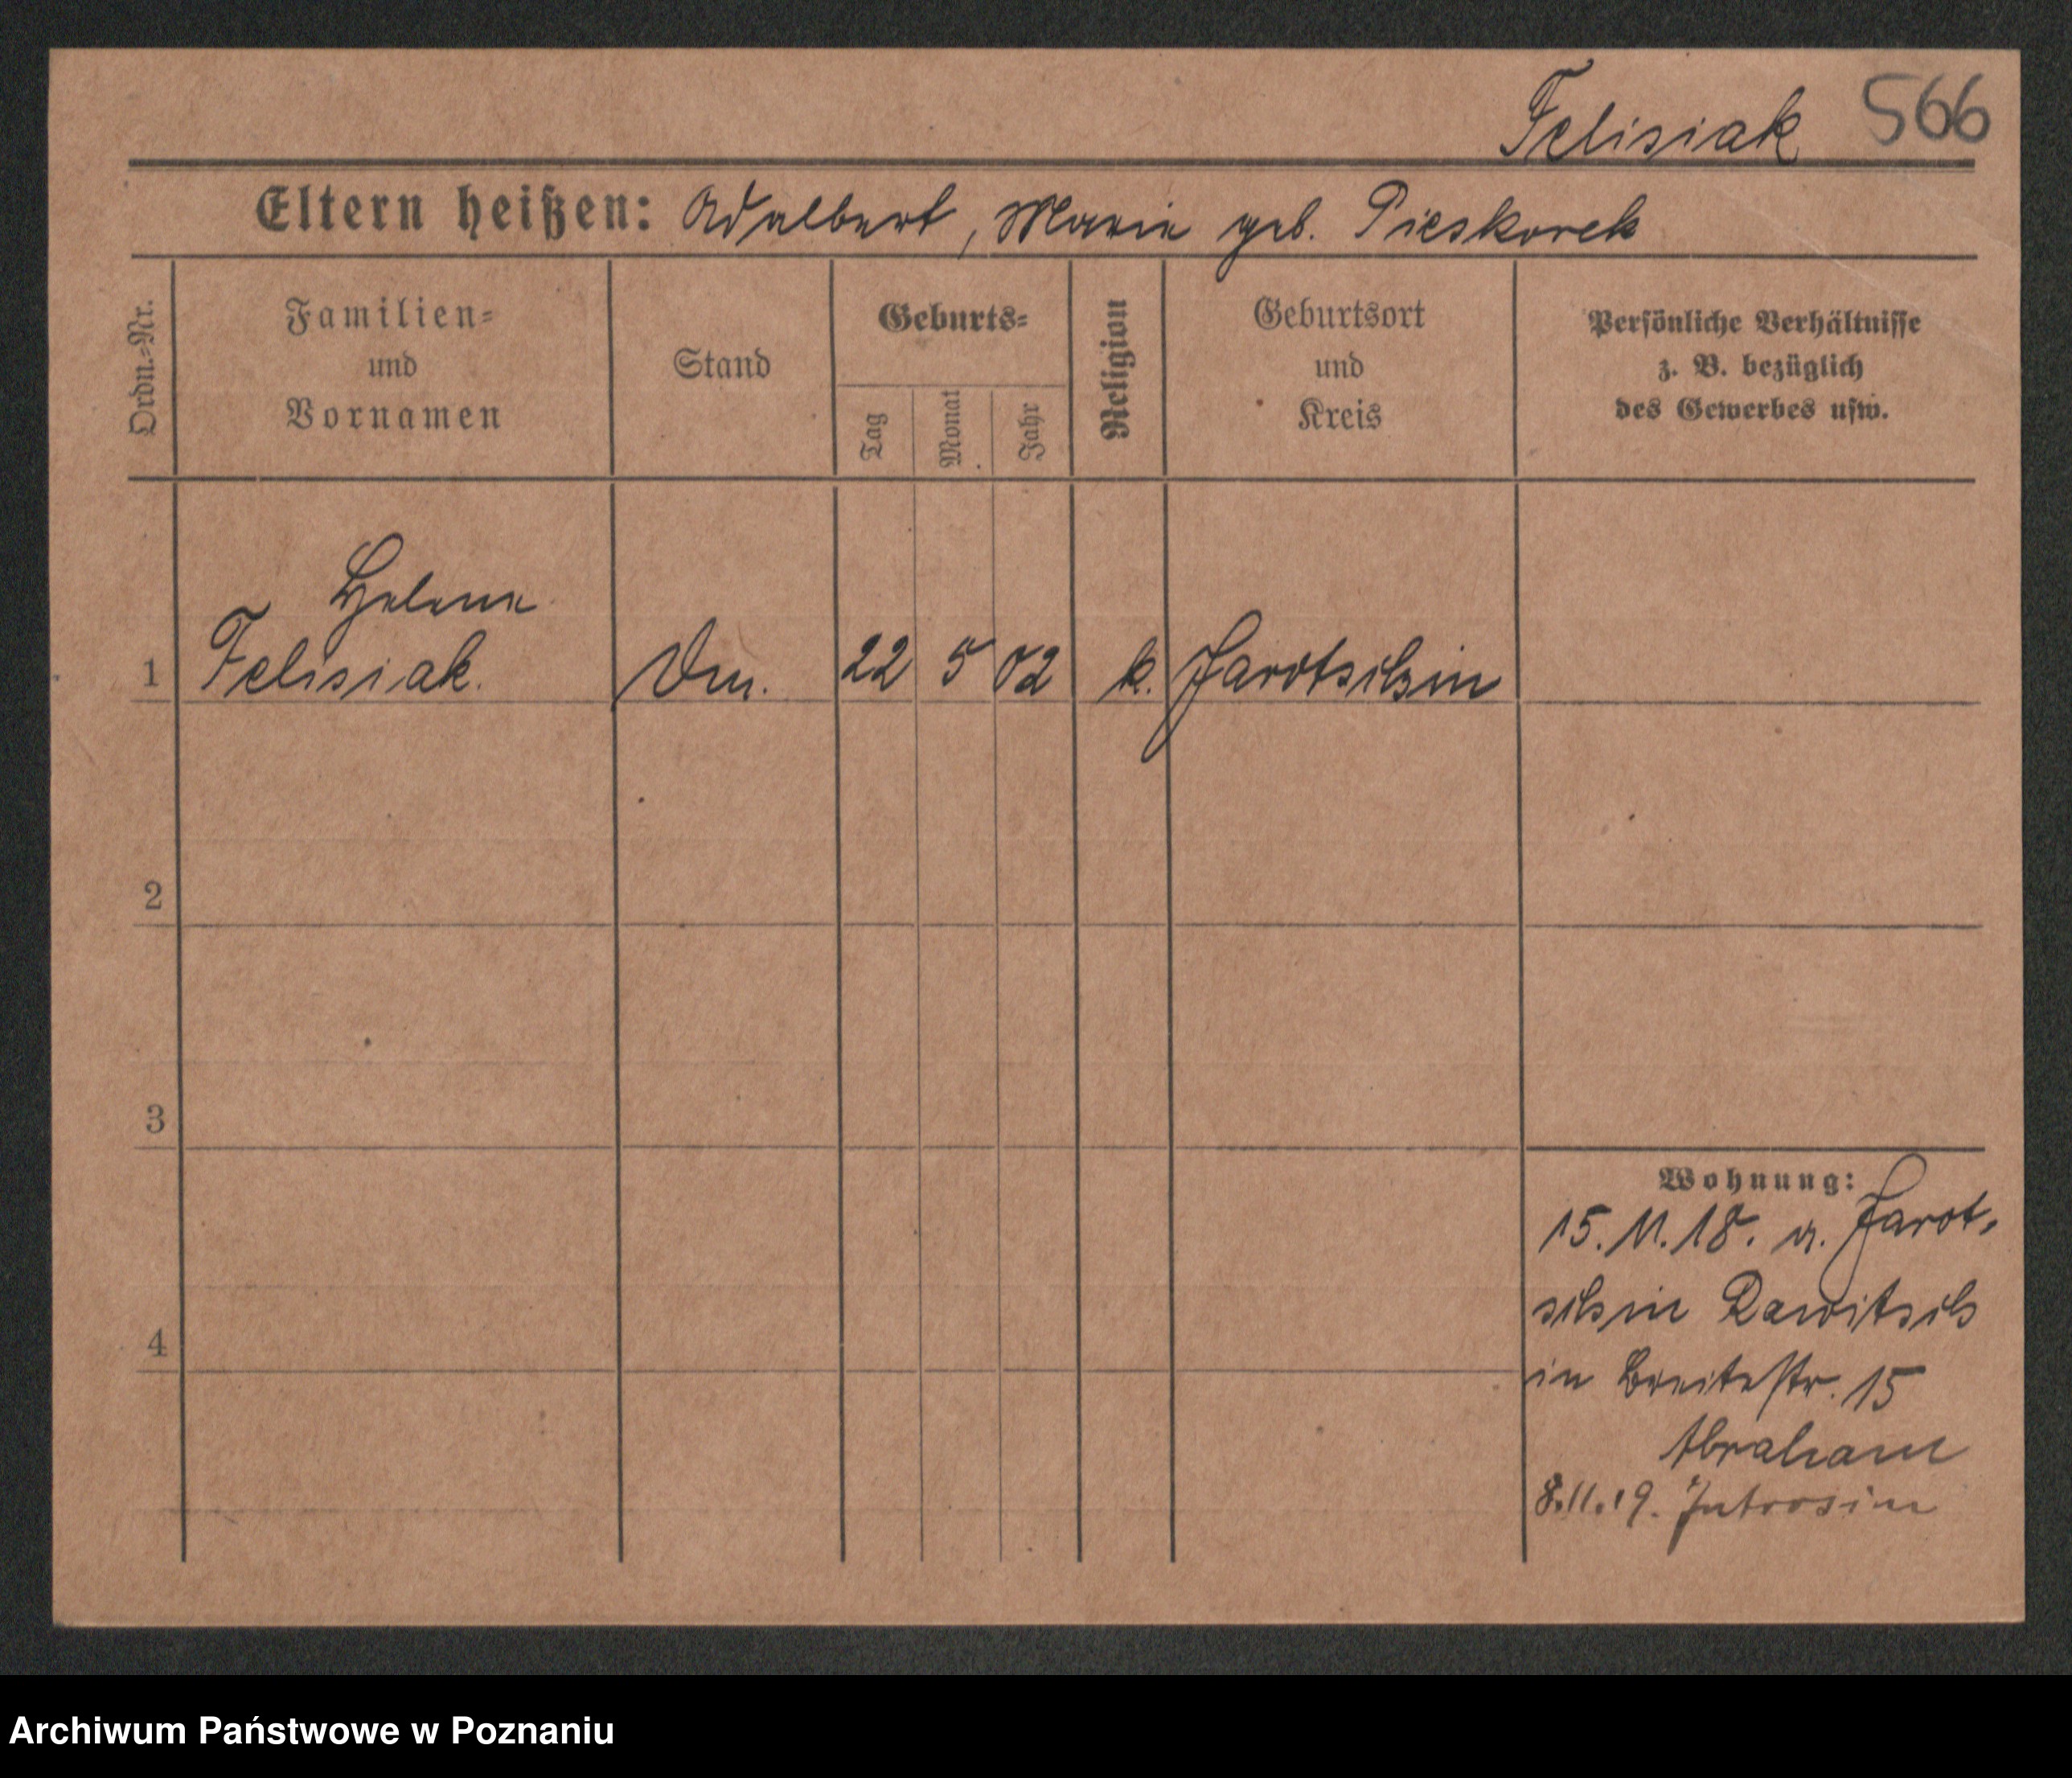 Felisiak 566
Eltern heißen: Adalbert, Marie geb. Pieskorek
Ordn.-Nr.
Familien-
und
Vornamen
Stand
Geburts-
Tag
Monat
Jahr
Religion
Geburtsort
und
Kreis
Persönliche Verhältnisse
z. B. bezüglich
des Gewerbes usw.
Helene
1 Felisiak. 22 5 02 k. Jarotschin
2
3
4
Wohnung:
15.11.18. v. Jarot-
schin Rawitsch
in Breitestr. 15
Abraham
8.11.19. Jutroschin
Archiwum Państwowe w Poznaniu